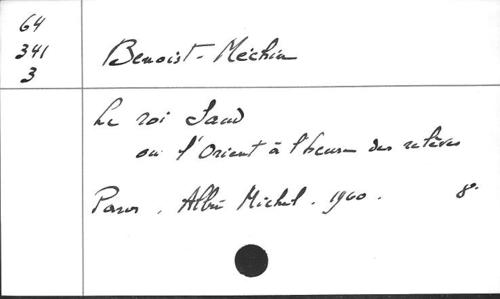 64
341
3
Benoist-Méchin
Le roi Saud
ou l'Orient à l'heure des relèves
Paris. Albin Michel. 1960. 8°.